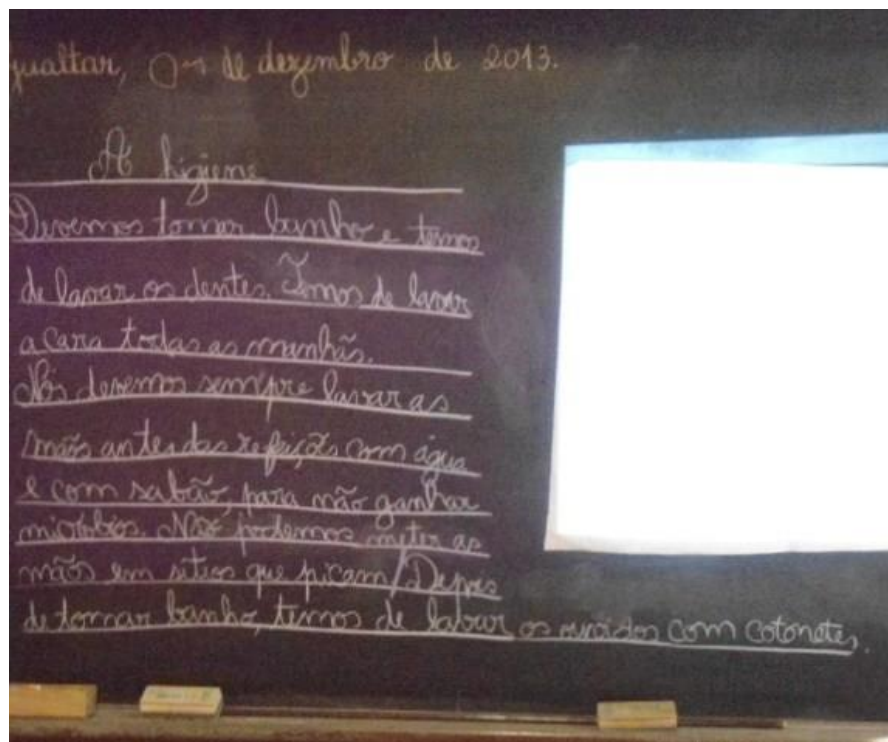 Gualtar, de dezembro de 2013.
A higiene
Devemos tomar banho e temos
de lavar os dentes. Temos de lavar
a cara todas as manhãs.
Nós devemos sempre lavar as
mãos antes das refeições com água
e com sabão, para não ganhar
micróbios. Não podemos meter as
mãos em sítios que picam/Depois
de tomar banho, temos de lavar os ouvidos com cotonetes.